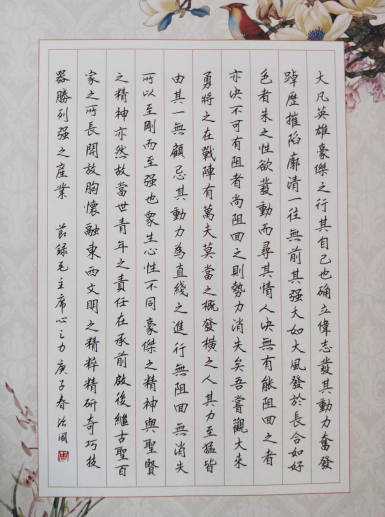 大凡英雄豪傑之行其自己也确立偉志發其動力奮發
踔歷摧陷廓清一往無前其强大如大風發於長合如好
色者朱之性欲發動而尋其情人决無有能阻回之者
亦决不可有阻者尚阻回之則勢力消失矣吾嘗觀大來
勇將之在戰陣有萬夫莫當之概發横之人其力至猛皆
由其一無顧忌其動力為直綫之進行無阻回無消失
所以至剛而至强也衆生心性不同豪傑之精神與聖賢
之精神亦然故當世青年之責任在承前啟後繼古聖百
家之所長開放胸懷融東西文明之精粹精研奇巧技
器勝列强之産業 節録毛主席心之力庚子春治國